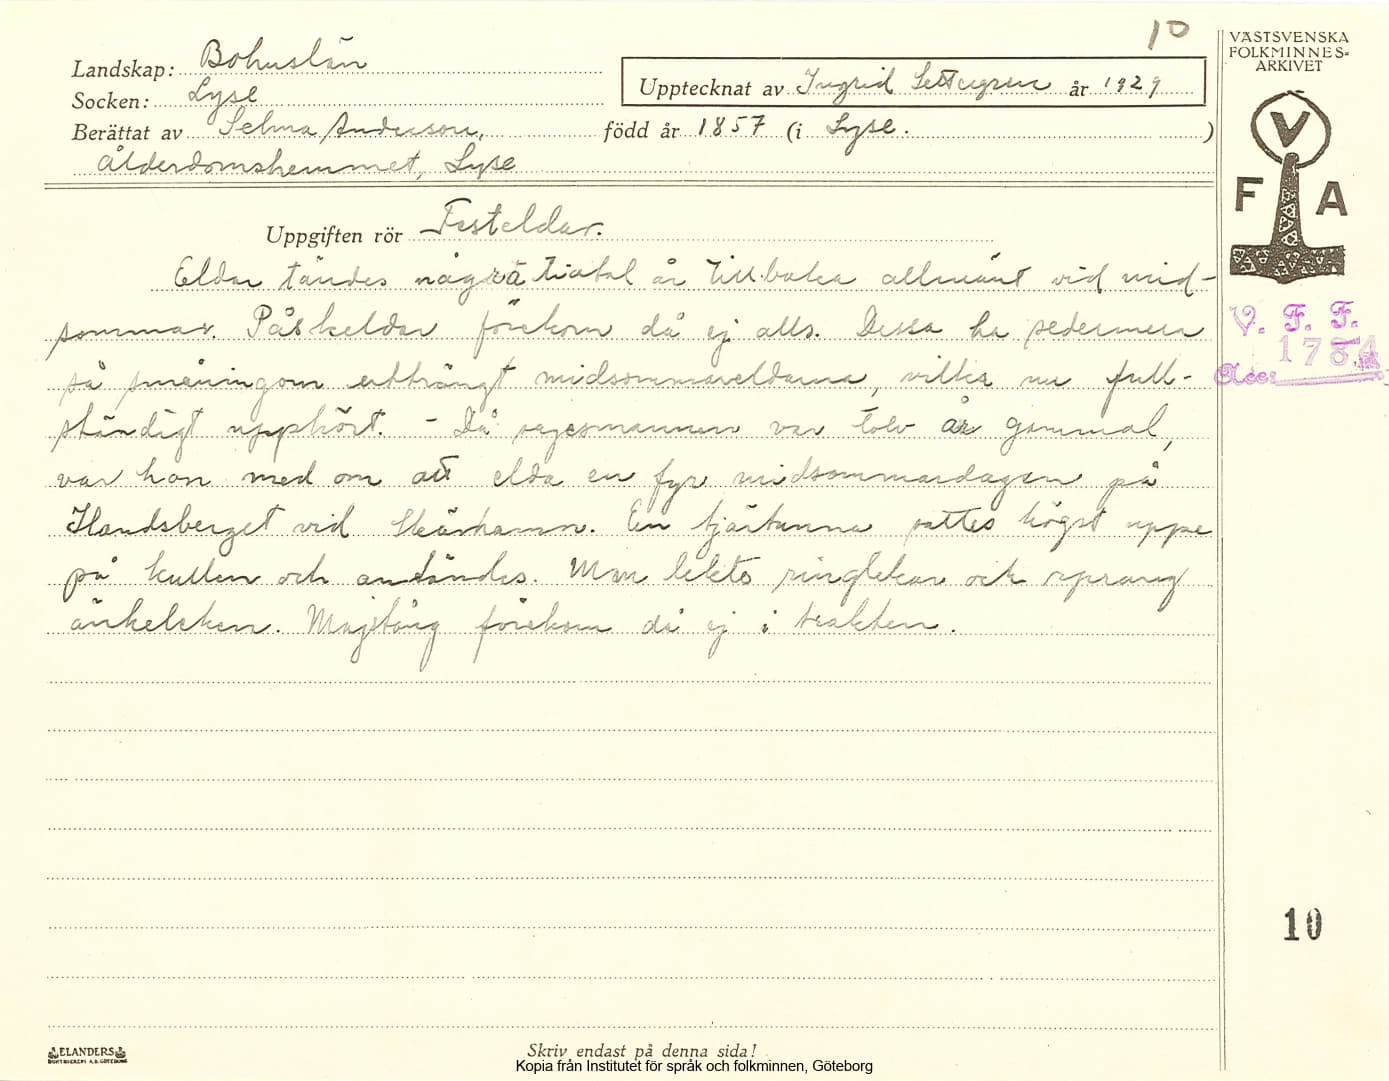 10
Landskap: Bohuslän
Upptecknat av Ingrid Settergren år 1929
Socken: Lyse
Berättat av Selma Anderson, född år 1857 (i Lyse. )
Ålderdomshemmet, Lyse
Uppgiften rör Festeldar.
Eldar tändes några tiotal år tillbaka allmänt vid mid-
sommar. Påskeldar förekom då ej alls. Dessa ha sedermera
så småningom utträngt midsommareldarna, vilka nu full-
ständigt upphört. - Då sagesmannen var tolv år gammal,
var hon med om att elda en fyr midsommardagen på
vid. En tjärtunna sattes högst uppe
på kullen och antändes. Man lekte ringlekar och sprang
änkeleken. Majstång förekom då ej i trakten.
VÄSTSVENSKA
FOLKMINNES=
ARKIVET
V
F A
V. F. F.
Acc: 1784
10
ELANDERS
BOKTRYCKERI A.B. GÖTEBORG
Skriv endast på denna sida!
Kopia från Institutet för språk och folkminnen, Göteborg